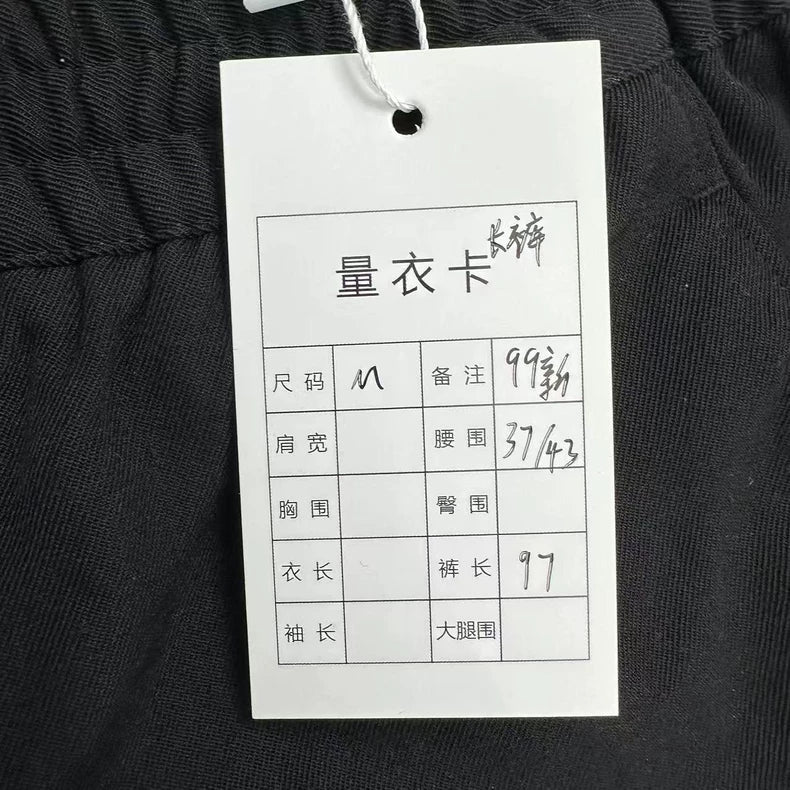 长裤
量衣卡
尺码 M 备注 99新
肩宽 腰围 37/43
胸围 臀围
衣长 裤长 97
袖长 大腿围